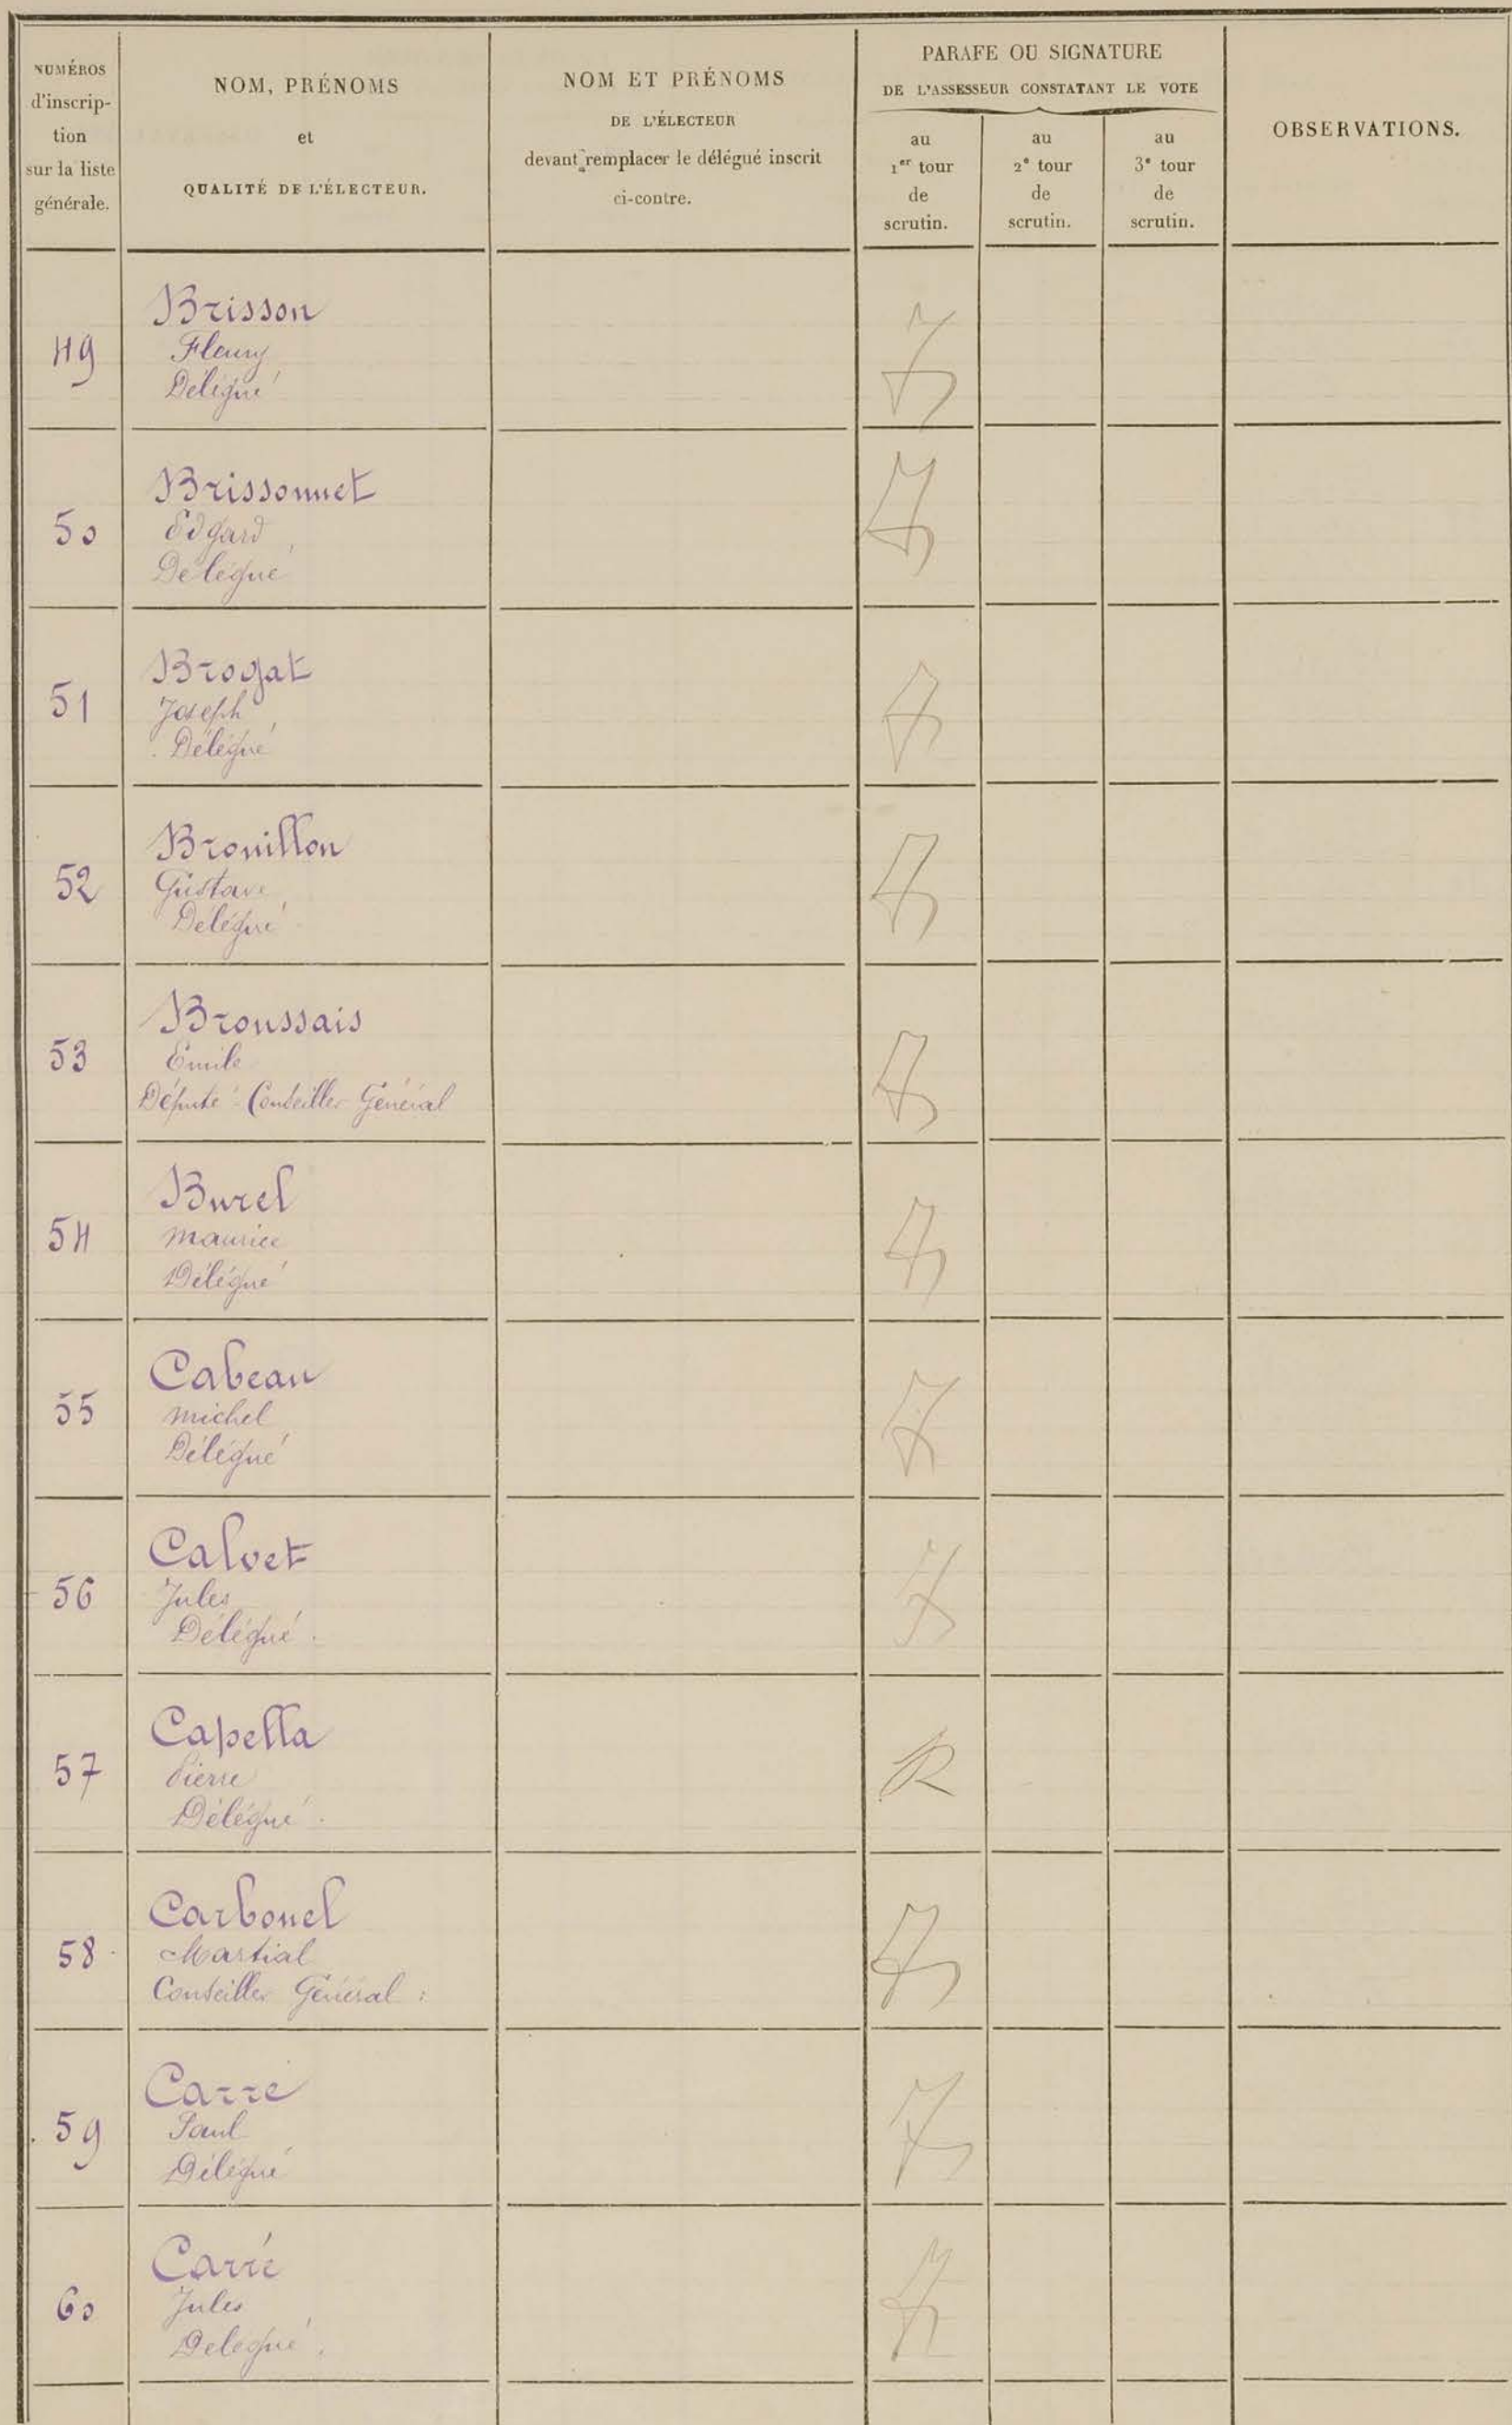 NUMÉROS
d'inscrip-
tion
sur la liste
générale.
NOM, PRÉNOMS
et
QUALITÉ DE L'ÉLECTEUR.
NOM ET PRÉNOMS
DE L'ÉLECTEUR
devant remplacer le délégué inscrit
ci-contre.
PARAFE OU SIGNATURE
DE L'ASSESSEUR CONSTATANT LE VOTE
au
1er tour
de
scrutin.
au
2e tour
de
scrutin.
au
3e tour
de
scrutin.
OBSERVATIONS.
49
Brisson
Fleury
Délégué
50
Brissonnet
Edgard
Délégué
51
Brogat
Joseph
Délégué
52
Brouillon
Gustave
Délégué
53
Broussais
Emile
Député Conseiller Général
54
Burel
Maurice
Délégué
55
Cabeau
Michel
Délégué
56
Calvet
Jules
Délégué.
57
Capella
Pierre
Délégué.
58
Carbonel
Martial
Conseiller Général :
59
Carré
Paul
Délégué
60
Carré
Jules
Délégué.